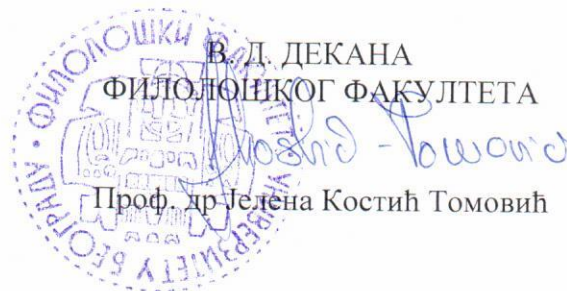 В. Д. ДЕКАНА
ФИЛОЛОШКОГ ФАКУЛТЕТА
Проф. др Јелена Костић Томовић
ФИЛОЛОШКИ ФАКУЛТЕТ УНИВЕРЗИТЕТ У БЕОГРАДУ